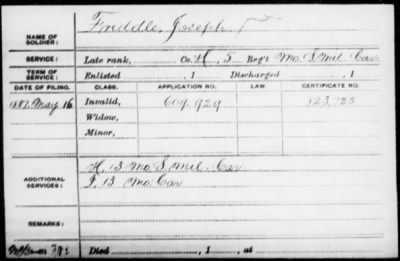 NAME OF SOLDIER: Friddle, Joseph
SERVICE: Late rank, Co. H, 5 Reg't Mo. S. Mil. Cav.
TERM OF SERVICE: Enlisted , 1 Discharged , 1
DATE OF FILING. CLASS. APPLICATION NO. LAW CERTIFICATE NO.
1887, May 16 Invalid, 609.929 323.725
Widow,
Minor,
ADDITIONAL SERVICES: H. 13 Mo. S. Mil. Cav
I. 13 Mo. Cav
REMARKS:
Died , 1 , at